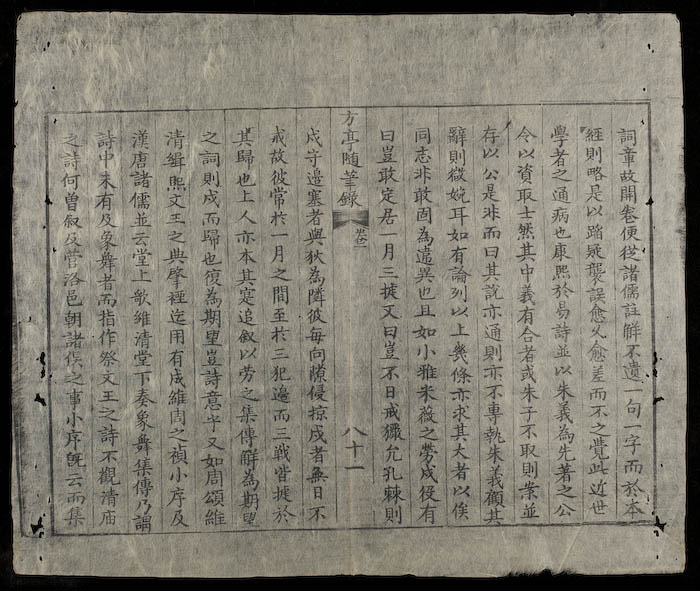 詞章故開卷便從諸儒註解不遺一句一字而於本
經則略是以踏疑襲誤愈久愈差而不之覺此近世
學者之通病也康熙於易詩並以朱義為先著之公
令以資取士然其中義有合者或朱子不取則案並
存以公是非而曰其說亦通則亦不專執朱義顧其
辭則微婉耳如有論列以上幾條亦求其大者以俟
同志非敢固為違異也且如小雅采薇之勞戍役有
曰豈敢定居一月三捷又曰豈不日戒玁允孔棘則
方亭隨筆錄 卷二 八十一
戍守邊塞者與狄為隣彼每向隙侵掠戍者無日不
戒故彼常於一月之間至於三犯邊而三戰皆捷於
其歸也上人亦本其寔追叙以勞之集傳解為期望
之詞則戍而歸也復為期望豈詩意乎又如周頌維
清緝熙文王之典肇禋迄用有成維周之禎小序及
漢唐諸儒並云堂上歌維清堂下奏象舞集傳乃謂
詩中未有及象舞者而指作祭文王之詩不觀清庙
之詩何曽叙及营洛邑朝諸侯之事小序旣云而集